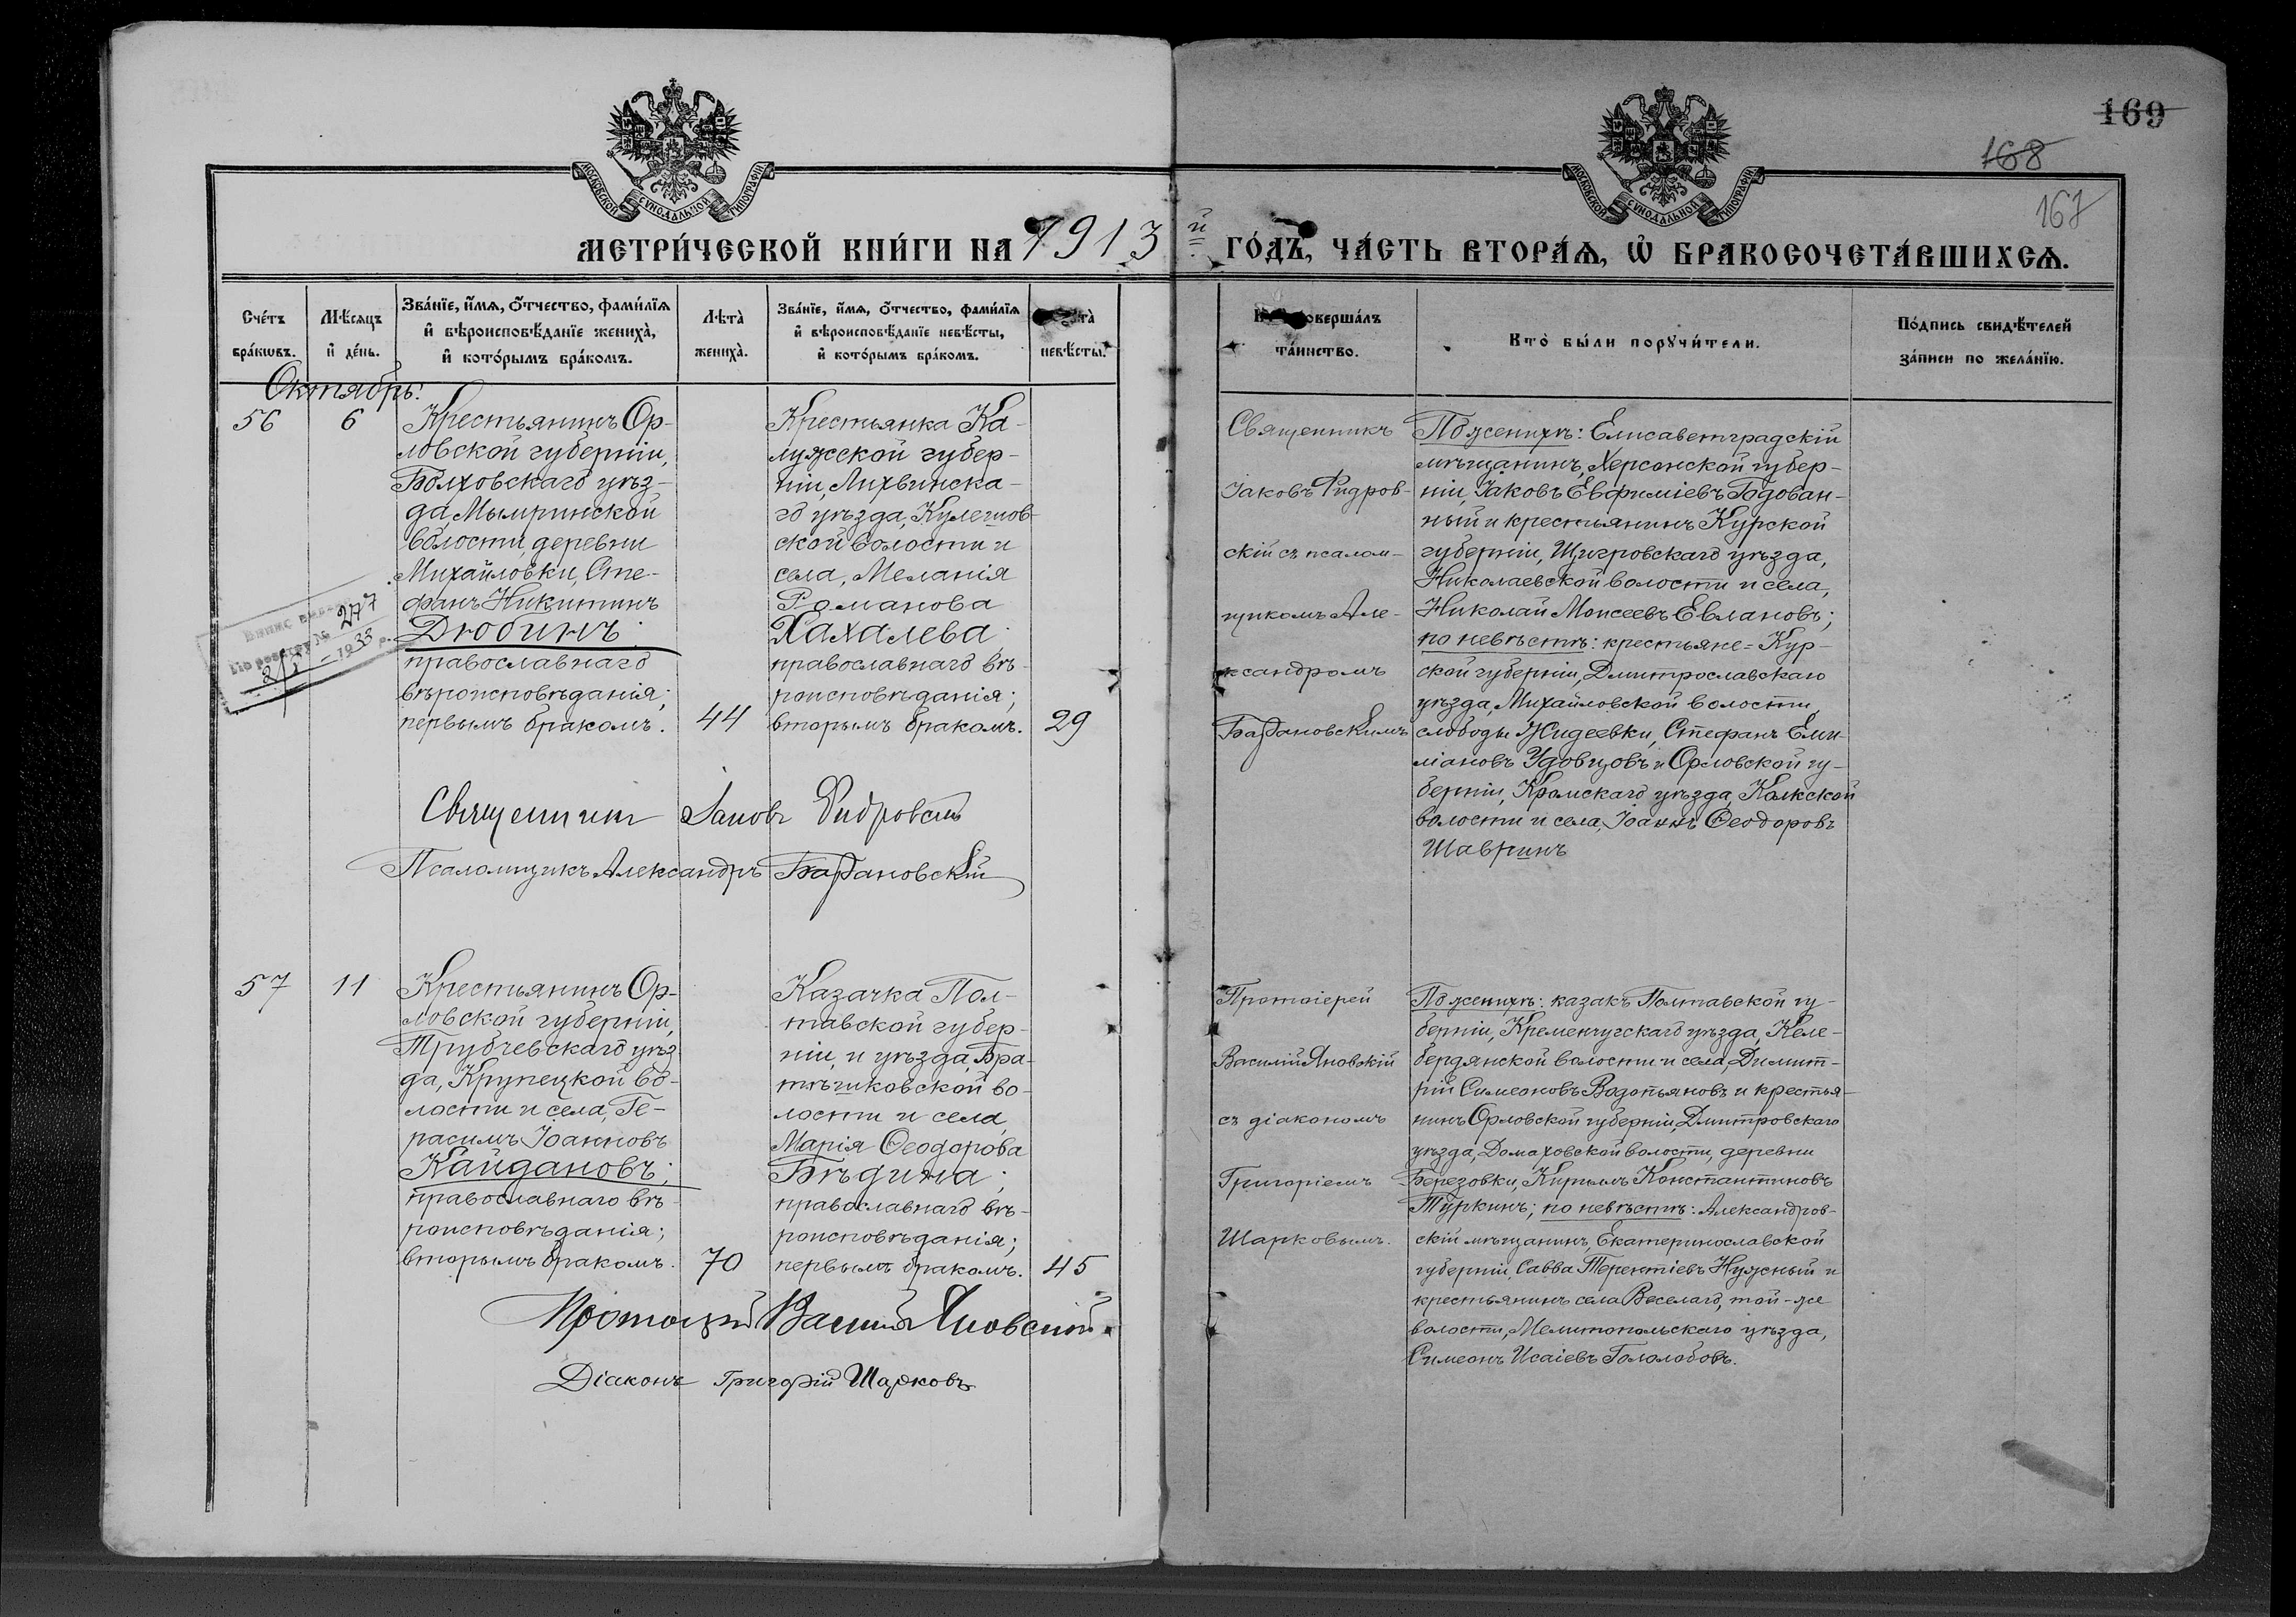 169
168
167
МОСКОВСКОЙ СѴНОДАЛЬНОЙ ТИПОГРАФІИ
МОСКОВСКОЙ СѴНОДАЛЬНОЙ ТИПОГРАФІИ
МЕТРИ́ЧЕСКОЙ КНИ́ГИ НА 1913 й ГО́ДЪ, ЧА́СТЬ ВТОРА́Ѧ, Ѡ҆ БРАКОСОЧЕТА́ВШИХСѦ.
Сче́тъ
бра́кѡвъ.
Мѣ́сѧцъ
и҆ де́нь.
Зва́нїе, и҆́мѧ, ѻ҆́тчество, фами́лїѧ
и҆ вѣроисповѣ́данїе жениха̀,
и҆ кото́рымъ бра́комъ.
Лѣта̀
жениха̀.
Зва́нїе, и҆́мѧ, ѻ҆́тчество, фами́лїѧ
и҆ вѣроисповѣ́данїе невѣ́сты,
и҆ кото́рымъ бра́комъ.
невѣ́сты.
соверша́лъ
та́инство.
Кто̀ бы́ли порꙋчи́тели.
По́дпись свидѣ́телей
за́писи по жела́нїю.
Октябрь:
56
6
Крестьянинъ Ор-
ловской губерніи,
Болховскаго уѣз-
да, Мымринской
волости, деревни
Михайловки, Сте-
фанъ Никитинъ
Дюбинъ;
православнаго
вѣроисповѣданія;
первымъ бракомъ.
44
Крестьянка Ка-
лужской губер-
ніи, Лихвинска-
го уѣзда, Кулешов-
ской волости и
села, Меланія
Романова
Хахалева;
православнаго вѣ-
роисповѣданія;
вторымъ бракомъ.
29
277
1933 р.
Священникъ
Іаковъ Фидров-
скій съ псалом-
щикомъ Але-
ксандромъ
Барановскимъ
По женихѣ: Елисаветградскій
мѣщанинъ, Херсонской губер-
ніи, Іаковъ Евфиміевъ Годован-
ный и крестьянинъ Курской
губерніи, Щигровскаго уѣзда,
Николаевской волости и села,
Николай Моисеевъ Евлановъ;
по невѣстѣ: крестьяне= Кур-
ской губерніи, Дмитрославскаго
уѣзда, Михайловской волости,
слободы Жидеевки, Стефанъ Еми-
ліановъ Удовцовъ и Орловской гу-
берніи, Кромскаго уѣзда,
волости и села, Іоаннъ Ѳеодоровъ
Шавринъ
Священникъ Іаковъ Фидровскій
Псаломщикъ Александръ Барановскій
57
11
Крестьянинъ Ор-
ловской губерніи,
Трубчевскаго уѣз-
да, Крупецкой во-
лости и села, Ге-
расимъ Іоанновъ
Кайдановъ;
православнаго вѣ-
роисповѣданія;
вторымъ бракомъ.
70
Казачка Пол-
тавской губер-
ніи, и уѣзда, Бра-
тѣшковской во-
лости и села,
Марія Ѳеодорова
Бѣдина;
православнаго вѣ-
роисповѣданія;
первымъ бракомъ.
45
Протоіерей
Василій Яновскій
съ діакономъ
Григоріемъ
Шарковымъ.
По женихѣ: казакъ Полтавской гу-
берніи, Кременчугскаго уѣзда, Келе-
бердянской волости и села, Димит-
рій Симеоновъ Водотьяновъ и крестья-
нинъ Орловской губерніи, Дмитровскаго
уѣзда, Домаховской волости, деревни
Березовки, Кириллъ Константиновъ
Туркинъ; по невѣстѣ: Александров-
скій мѣщанинъ, Екатеринославской
губерніи, Савва Терентіевъ Нужный и
крестьянинъ села Веселаго, той-же
волости, Мелитопольскаго уѣзда,
Симеонъ Исаіевъ Гололобовъ.
Протоіерей Василій Яновскій
Діаконъ Григорій Шарковъ